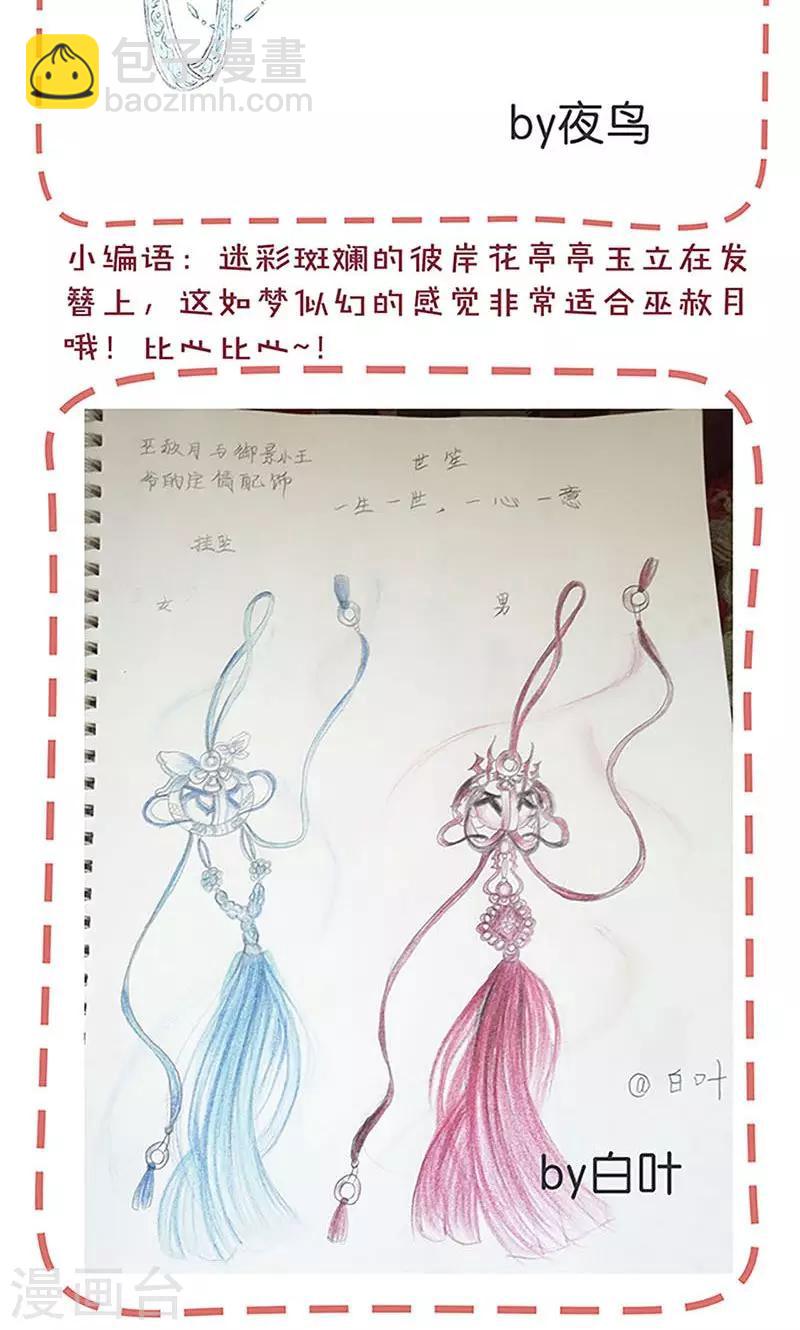 包子漫畫
baozimh.com
by夜鸟
小编语：迷彩斑斓的彼岸花亭亭玉立在发
簪上，这如梦似幻的感觉非常适合巫赦月
哦！比心比心~！
巫赦月与御景小王
爷的定情配饰
世笙
一生一世，一心一意
挂坠
女
男
@白叶
by白叶
漫画台